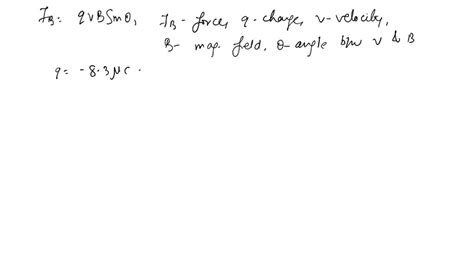 F_B = qvB Sinθ, F_B - force, q - charge, v - velocity,
B - mag. field, θ - angle b/w v & B
q = -8.3 μC.